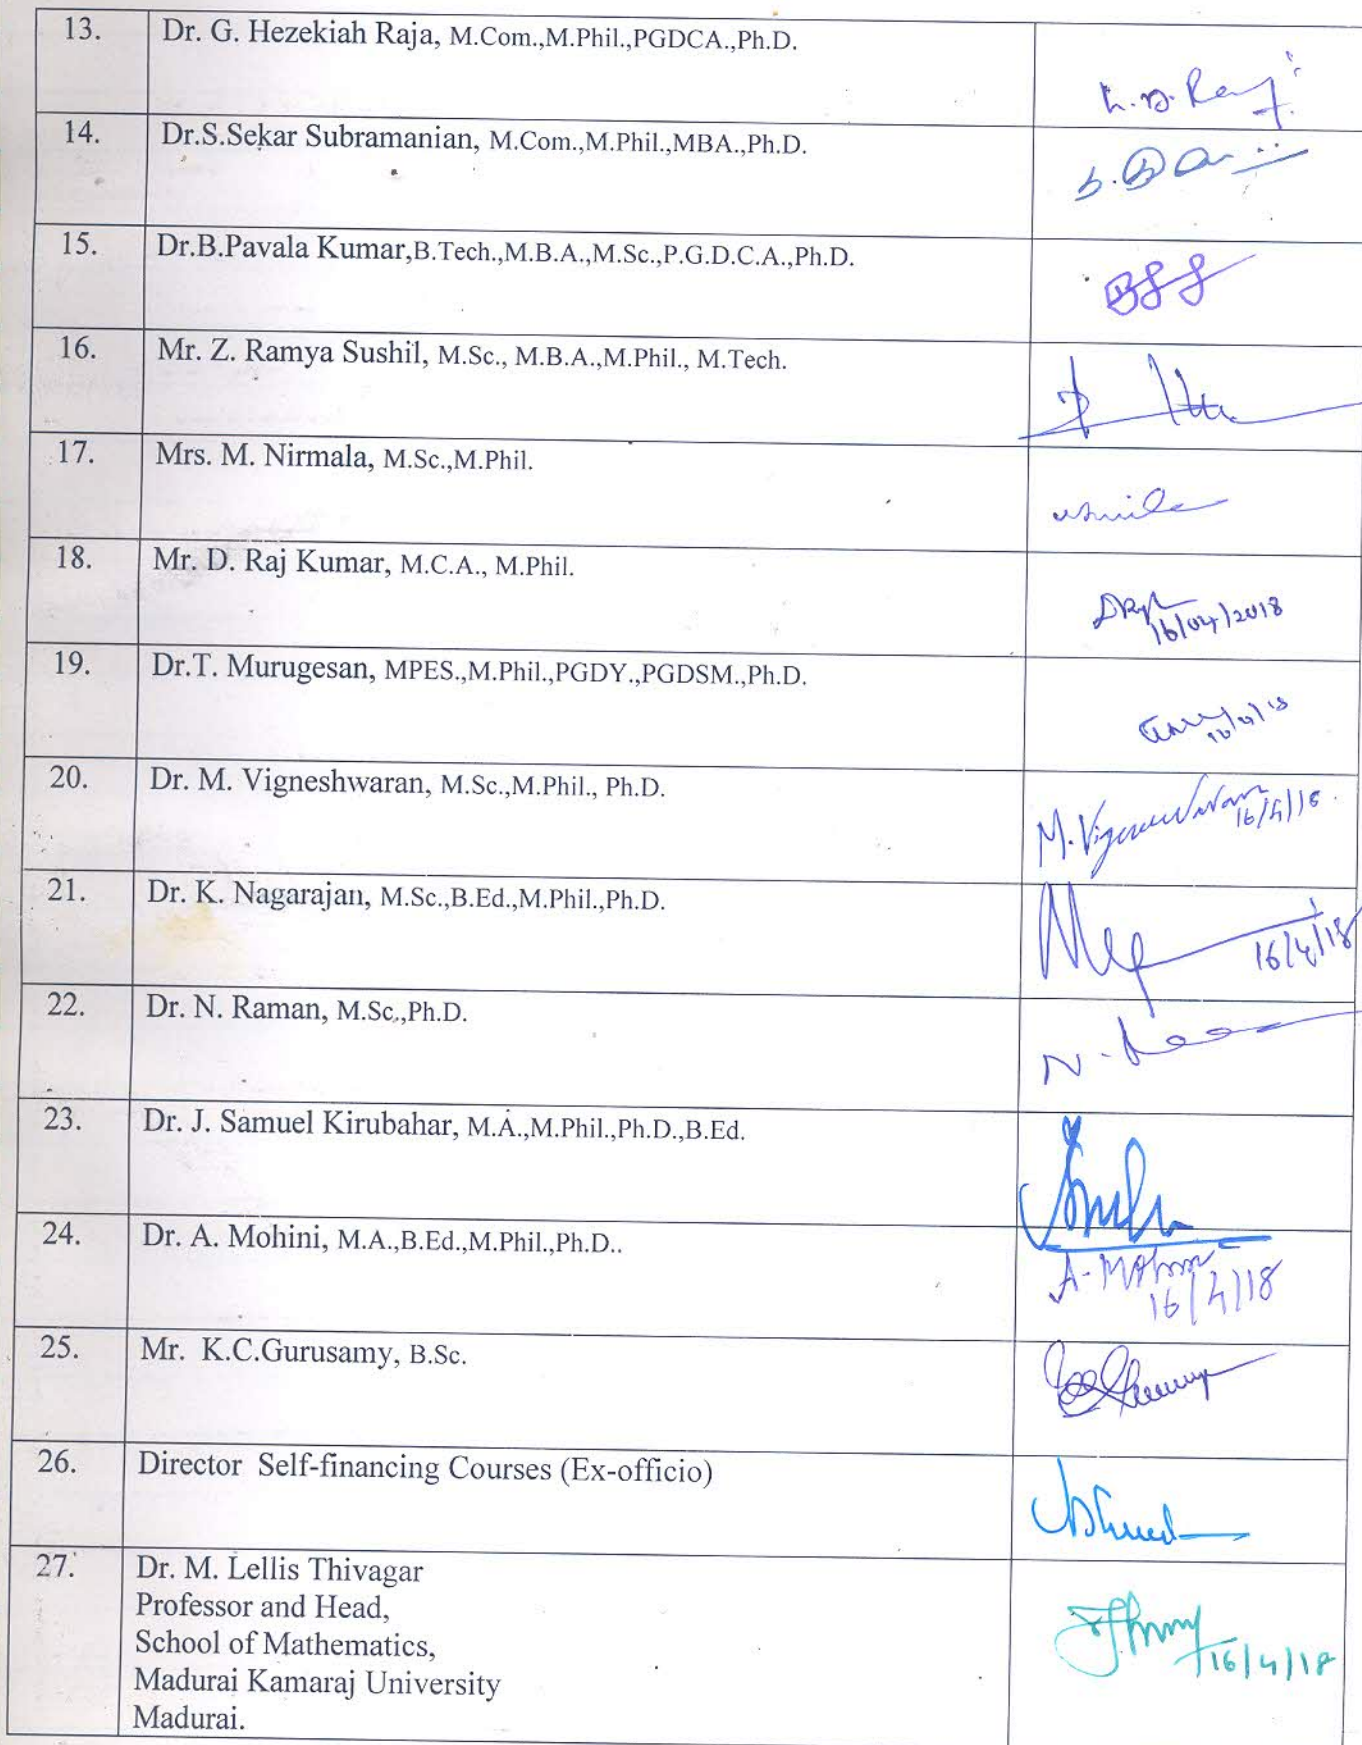 13. Dr. G. Hezekiah Raja, M.Com.,M.Phil.,PGDCA.,Ph.D.
14. Dr.S.Sekar Subramanian, M.Com.,M.Phil.,MBA.,Ph.D.
15. Dr.B.Pavala Kumar,B.Tech.,M.B.A.,M.Sc.,P.G.D.C.A.,Ph.D.
16. Mr. Z. Ramya Sushil, M.Sc., M.B.A.,M.Phil., M.Tech.
17. Mrs. M. Nirmala, M.Sc.,M.Phil.
18. Mr. D. Raj Kumar, M.C.A., M.Phil.
16/04/2018
19. Dr.T. Murugesan, MPES.,M.Phil.,PGDY.,PGDSM.,Ph.D.
20. Dr. M. Vigneshwaran, M.Sc.,M.Phil., Ph.D.
M. Vigneshwaran
16/4/18.
21. Dr. K. Nagarajan, M.Sc.,B.Ed.,M.Phil.,Ph.D.
16/4/18
22. Dr. N. Raman, M.Sc.,Ph.D.
23. Dr. J. Samuel Kirubahar, M.A.,M.Phil.,Ph.D.,B.Ed.
24. Dr. A. Mohini, M.A.,B.Ed.,M.Phil.,Ph.D..
A. Mohini
16/4/18
25. Mr. K.C.Gurusamy, B.Sc.
26. Director Self-financing Courses (Ex-officio)
27. Dr. M. Lellis Thivagar
Professor and Head,
School of Mathematics,
16/4/18
Madurai Kamaraj University
Madurai.